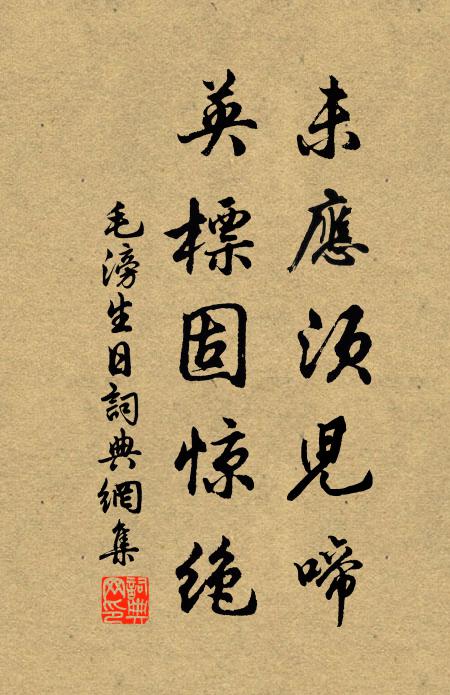 未應須兒啼
英標固惊絶
毛滂生日詞典網集
詞典网印